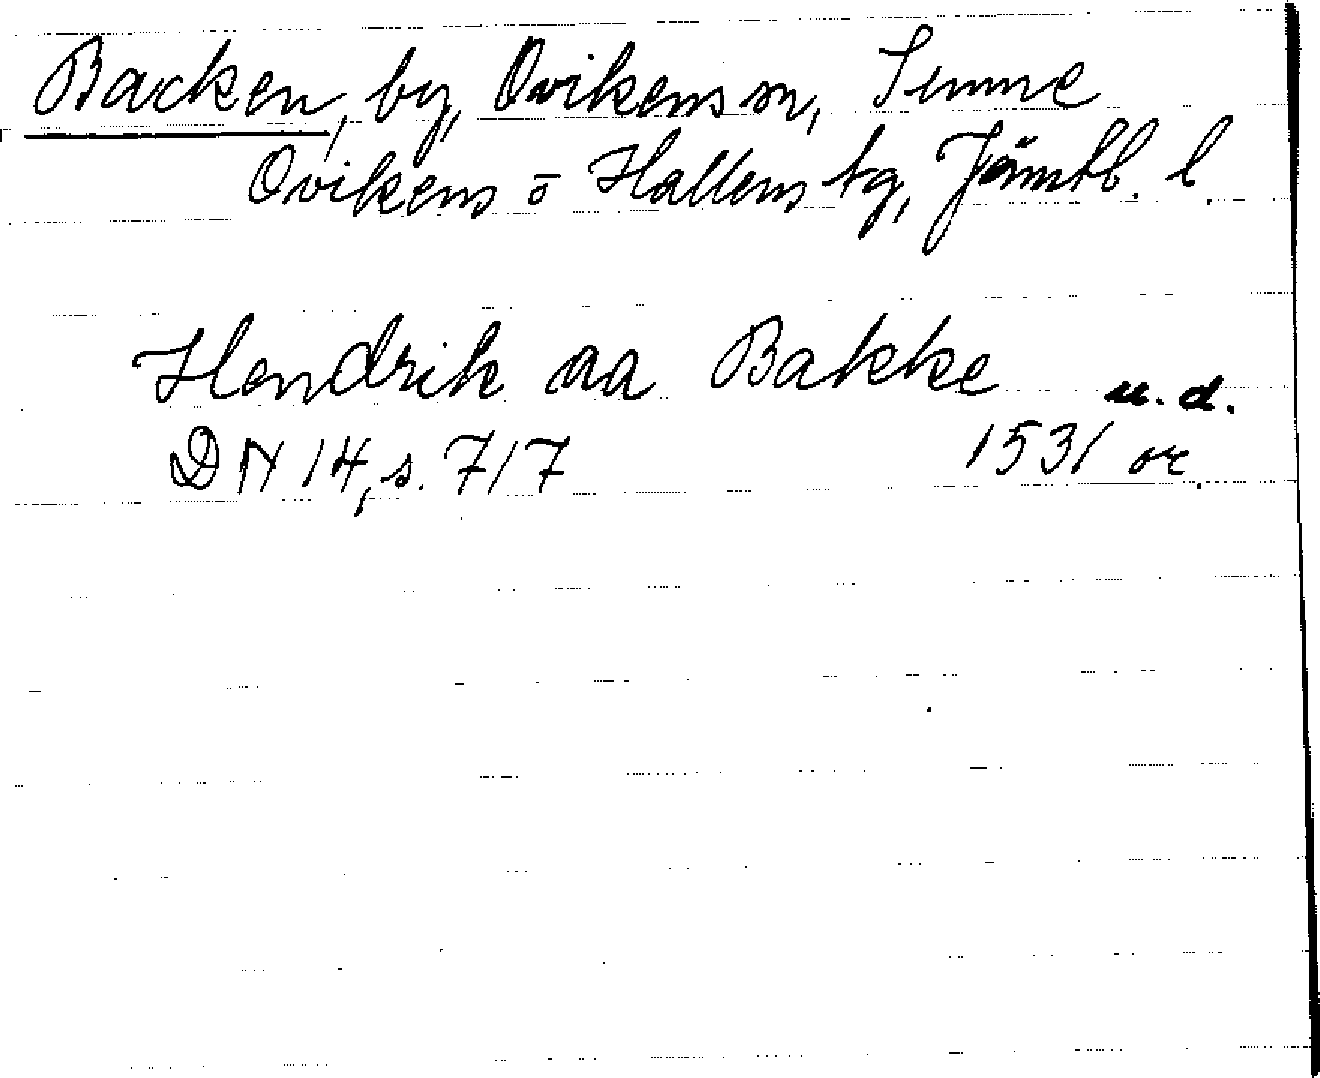 Backen, by, Ovikens sn, Sunne
Ovikens o Hallens tg, Jämtl. l.
Hendrik aa Bakke u. d.
DN 14, s. 717 1531 or.